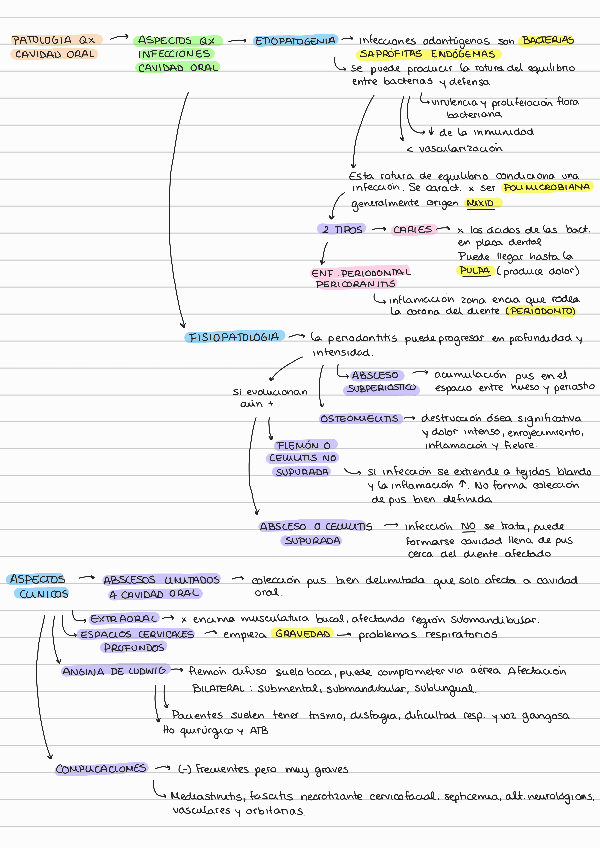 PATOLOGIA Qx → ASPECTOS QX → ETIOPATOGENIA → infecciones odontógenas son BACTERIAS
CAVIDAD ORAL INFECCIONES SAPRÓFITAS ENDÓGENAS
CAVIDAD ORAL se puede producir la rotura del equilibrio
entre bacterias y defensa
virulencia y proliferación flora
bacteriana
↓ de la inmunidad
< vascularización
Esta rotura de equilibrio condiciona una
infección. Se caract. x ser POLIMICROBIANA
generalmente origen MIXTO
2 TIPOS → CARIES → x los ácidos de las bact.
en placa dental
Puede llegar hasta la
PULPA (produce dolor)
ENF. PERIODONTAL
PERICORANITIS
inflamación zona encía que rodea
la corona del diente (PERIODONTO)
FISIOPATOLOGIA → la periodontitis puede progresar en profundidad y
intensidad.
ABSCESO → acumulación pus en el
SUBPERIÓSTICO espacio entre hueso y periostio
si evolucionan
aún +
OSTEOMIELITIS → destrucción ósea significativa
y dolor intenso, enrojecimiento,
inflamación y fiebre.
FLEMÓN O
CELULITIS NO
SUPURADA si infección se extiende a tejidos blando
y la inflamación ↑. No forma colección
de pus bien definida
ABSCESO O CELULITIS → infección NO se trata, puede
SUPURADA formarse cavidad llena de pus
cerca del diente afectado
ASPECTOS → ABSCESOS LIMITADOS → colección pus bien delimitada que solo afecta a cavidad
CLINICOS A CAVIDAD ORAL oral.
EXTRAORAL → x encima musculatura bucal, afectando región submandibular.
ESPACIOS CERVICALES → empieza GRAVEDAD → problemas respiratorios
PROFUNDOS
ANGINA DE LUDWIG → flemón difuso suelo boca, puede comprometer vía aérea. Afectación
BILATERAL: submental, submandibular, sublingual.
Pacientes suelen tener trismo, disfagia, dificultad resp. y voz gangosa
tto quirúrgico y ATB
COMPLICACIONES → (-) Frecuentes pero muy graves
Mediastinitis, fascitis necrotizante cervicofacial. septicemia, alt. neurológicas,
vasculares y orbitarias.